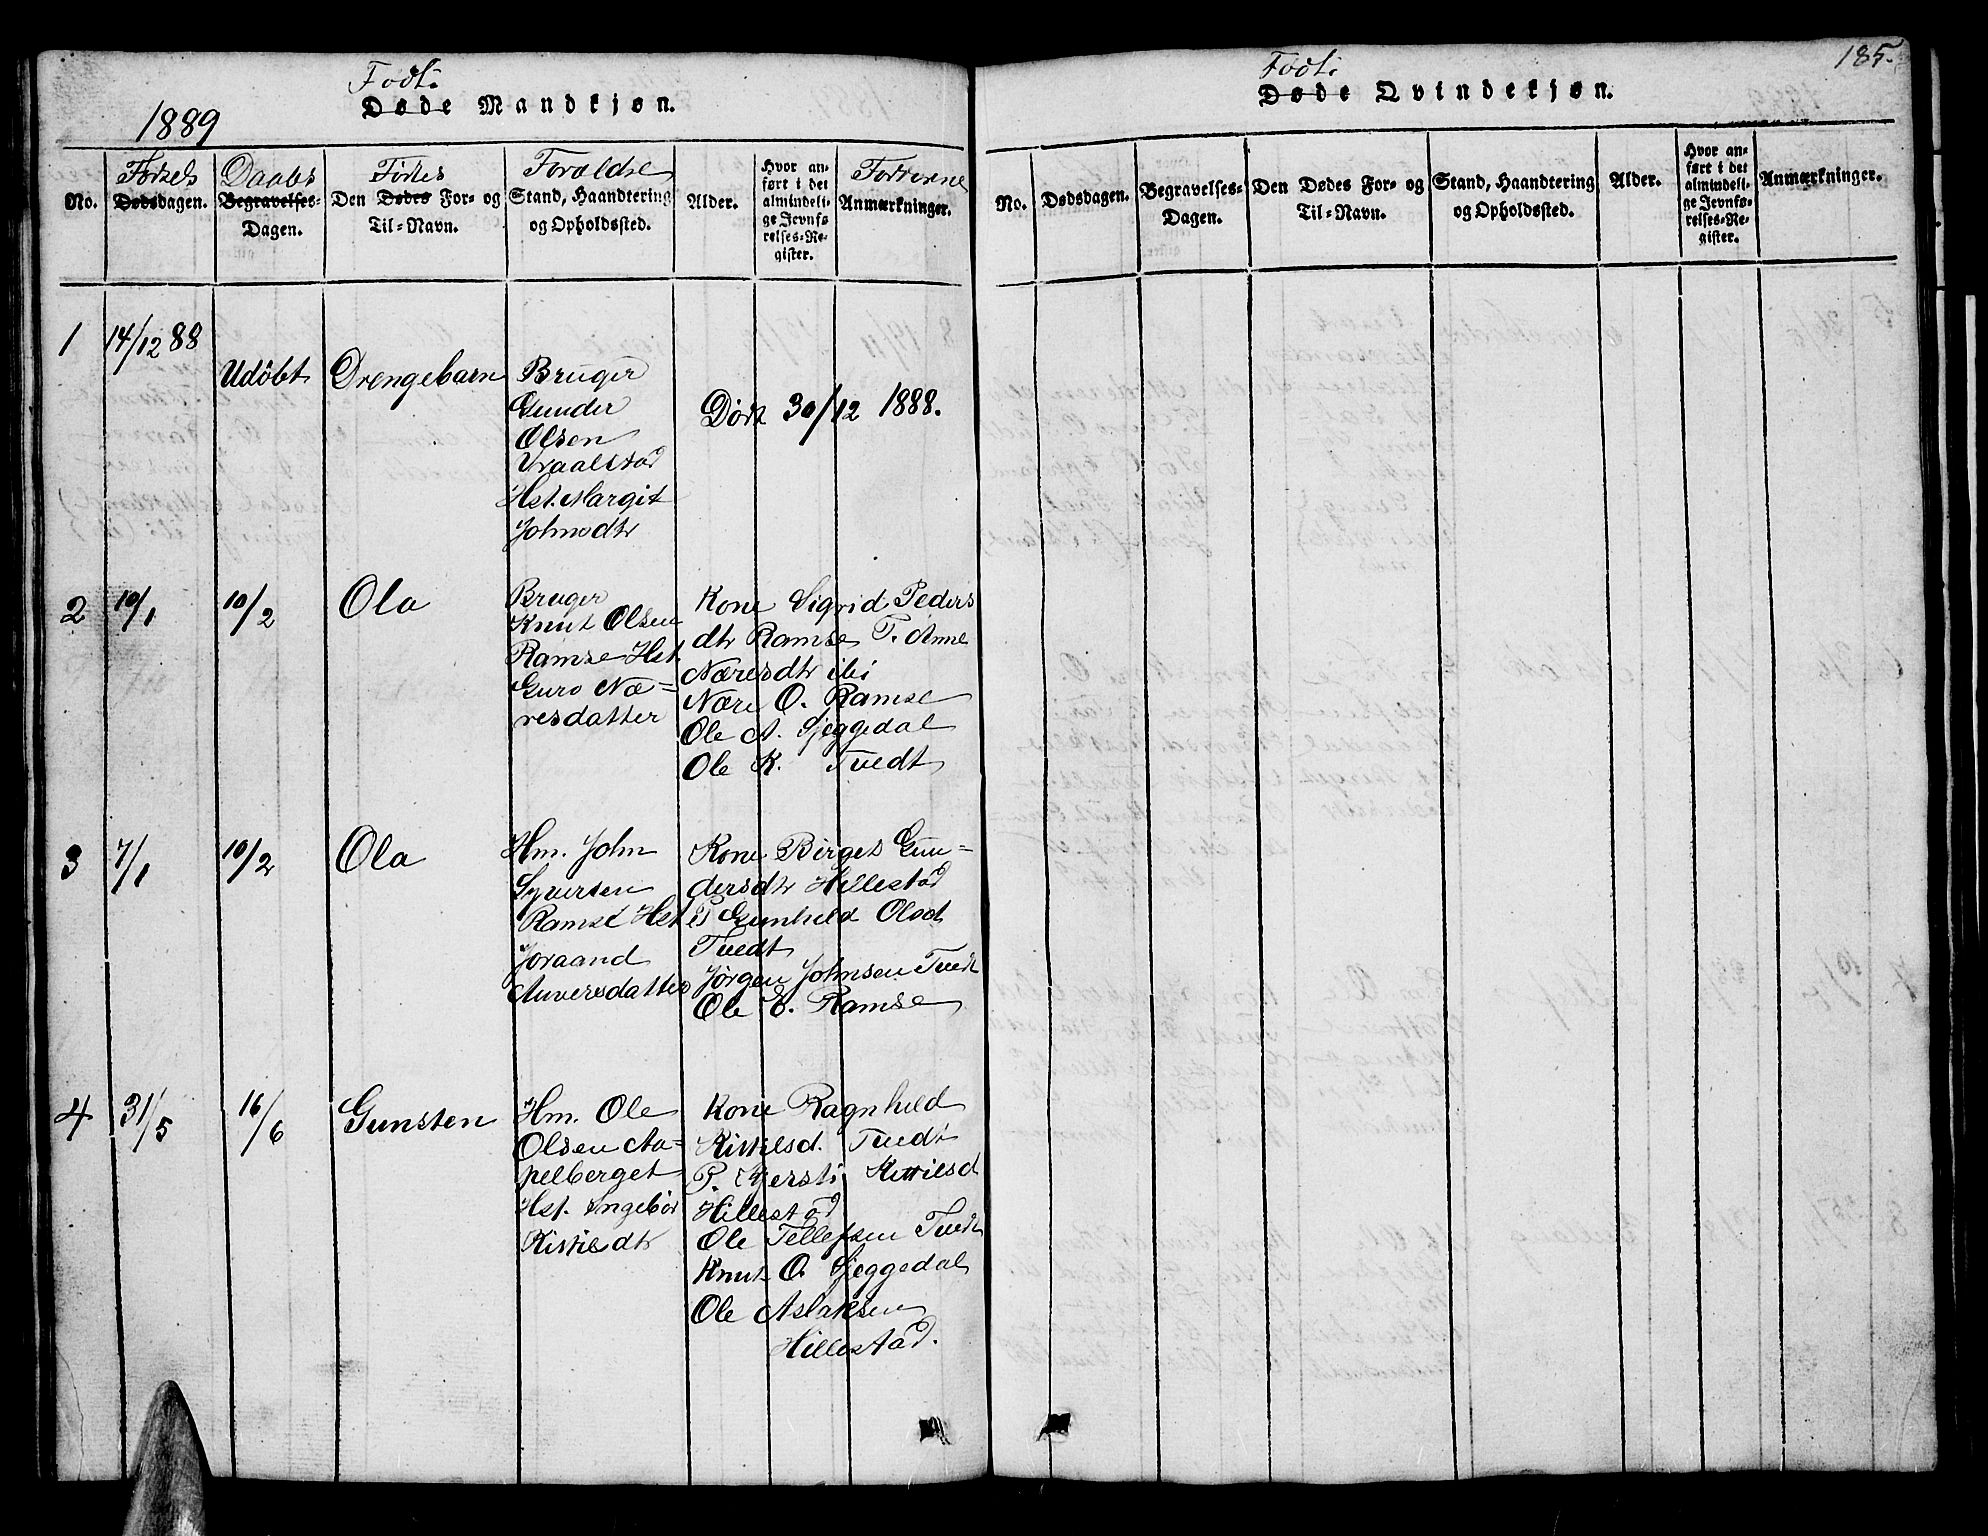 Født.
Døde Mandkjøn.
1889
No.
Fødsels
Dødsdagen.
Daabs
Begravelses-
Dagen.
Fødtes
Den Dødes For- og
Til-Navn.
Forældre
Stand, Haandtering
og Opholdssted.
Alder.
Hvor an-
ført i det
almindeli-
ge Jevnfø-
relses-Re-
gister.
Fadderne
Anmærkninger.
1
14/12 88
Udöbt
Drengebarn
Bruger
Gunder
Olsen
Vraalstad
Hst. Margit
Johnsdtr
Död 30/12 1888.
2
10/1
10/2
Ola
Bruger
Knut Olsen
Ramse Hst.
Guro Næ-
resdatter
Kone Sigrid Peders
dtr Ramse P. Anne
Næresdtr ibi
Nære O. Ramse
Ole A. Sjeggedal
Ole K. Tvedt
3
7/1
10/2
Ola
Hm. John
Syversen
Ramse Hst
Joraand
Auversdatter
Kone Birget Gun-
dersdtr Hillestad
P Gunhild Olsd
Tvedt
Jørgen Johnsen Tvedt
Ole E. Ramse
4
31/5
16/6
Gunsten
Hm. Ole
Olsen Aa-
pelberget
Hst. Ingebör
Kistilsdtr
Kone Ragnhild
Kistilsd. Tvedt
P. Kjersti Kittilsd
Hillestad
Ole Tellefsen Tvedt
Knut O. Sjeggedal
Ole Aslaksen
Hillestad.
185.
Født.
Døde Qvindekjøn.
No.
Dødsdagen.
Begravelses-
Dagen.
Den Dødes For- og
Til-Navn.
Stand, Haandtering
og Opholdssted.
Alder.
Hvor an-
ført i det
almindeli-
ge Jevnfø-
relses-Re-
gister.
Anmærkninger.